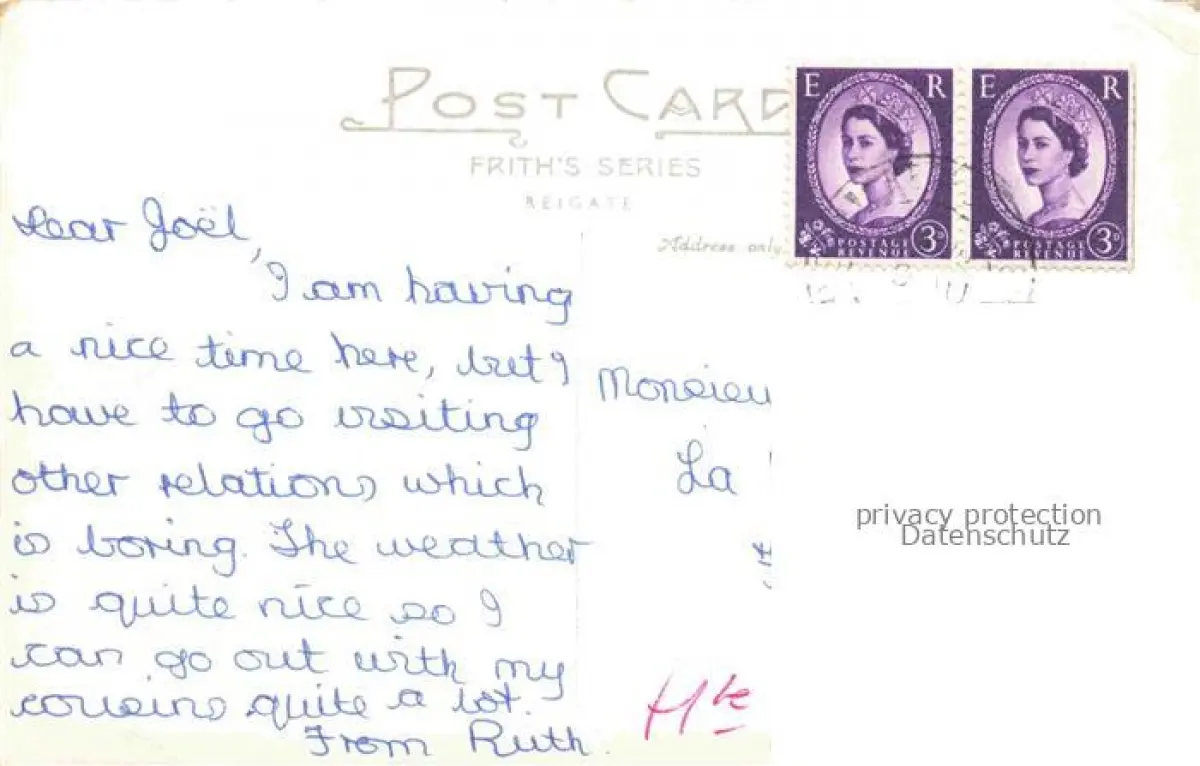 POST CARD
FRITH'S SERIES
REIGATE
Address only
E R
3D
POSTAGE
REVENUE
E R
3D
POSTAGE
REVENUE
Dear Joël,
I am having
a nice time here, but I
have to go visiting
other relations which
is boring. The weather
is quite nice so I
can go out with my
cousins quite a lot.
From Ruth.
Monsieu
La
Hte
privacy protection
Datenschutz